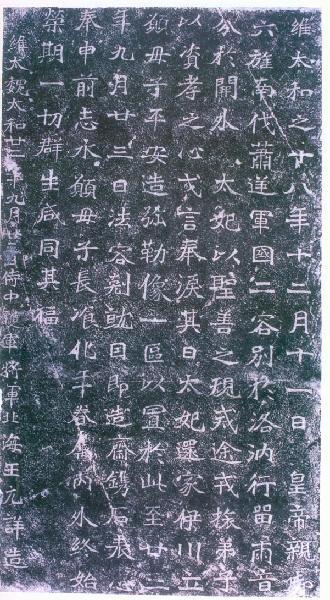 維太和之十八年十二月十一日皇帝親御
六旌南伐蕭逆軍國二容別於洛汭行留兩音
分於開外太妃以聖善之規戒途戎旅弟子
以資孝之心戈言奉淚其日太妃還家伊川立
願母子平安造彌勒像一區以置於此至廿二
年九月廿三日法容剋就因即造齋鐫石表心
奉申前志永願母子長飡化年眷屬內外終始
榮期一切群生咸同其福
維大魏太和廿二年九月廿三日侍中護軍將軍北海王元詳造